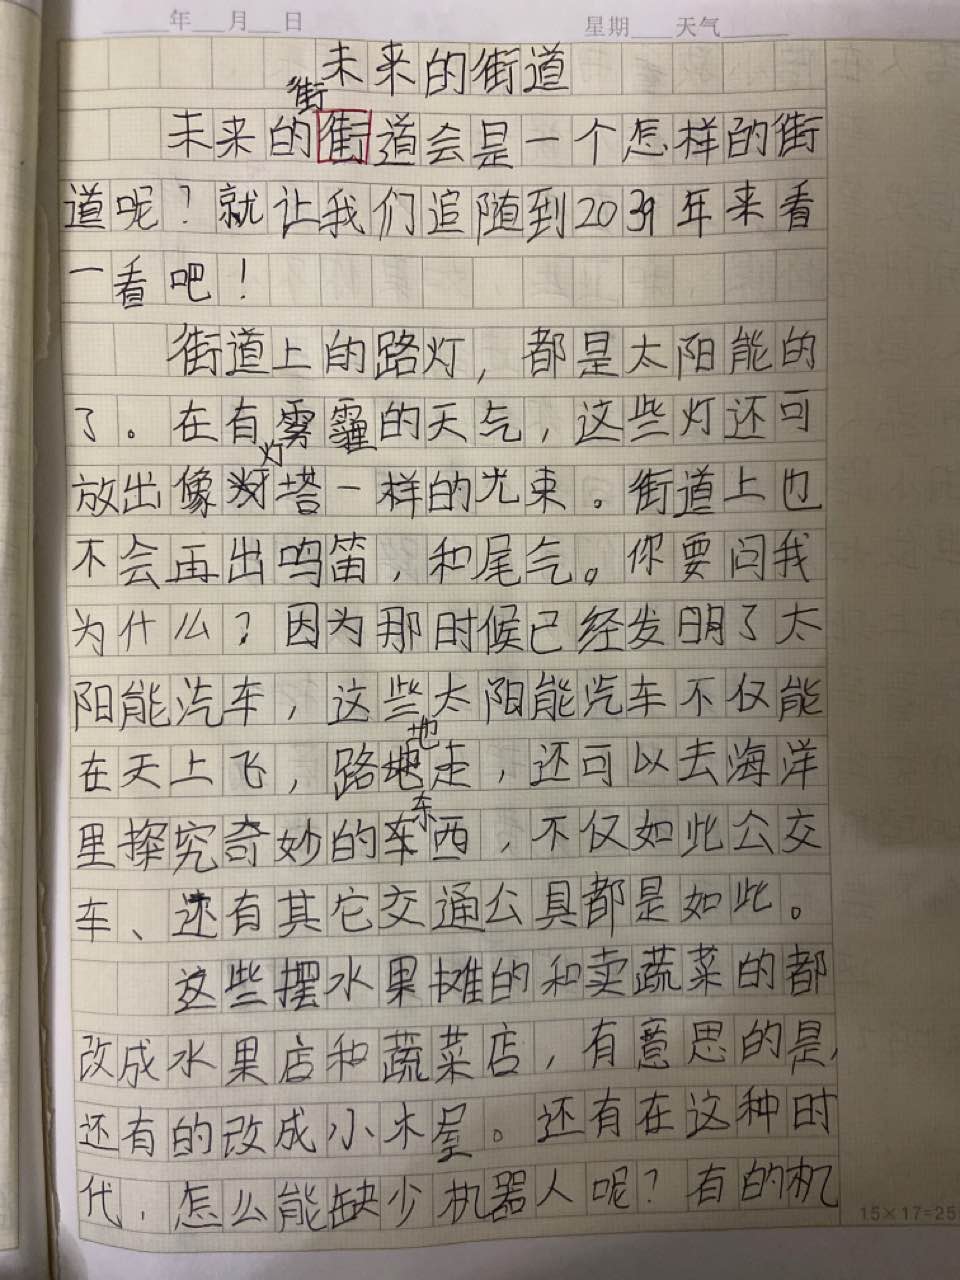 年 月 日 星期 天气
未来的街道
街
未来的街道会是一个怎样的街
道呢？就让我们追随到2039年来看
一看吧！
街道上的路灯，都是太阳能的
了。在有雾霾的天气，这些灯还可
灯
放出像塔一样的光束。街道上也
不会再出鸣笛，和尾气。你要问我
为什么？因为那时候已经发明了太
阳能汽车，这些太阳能汽车不仅能
地
在天上飞，路地走，还可以去海洋
东
里探究奇妙的车西，不仅如此公交
车、还有其它交通公具都是如此。
这些摆水果摊的和卖蔬菜的都
改成水果店和蔬菜店，有意思的是，
还有的改成小木屋。还有在这种时
代，怎么能缺少机器人呢？有的机
15×17=25